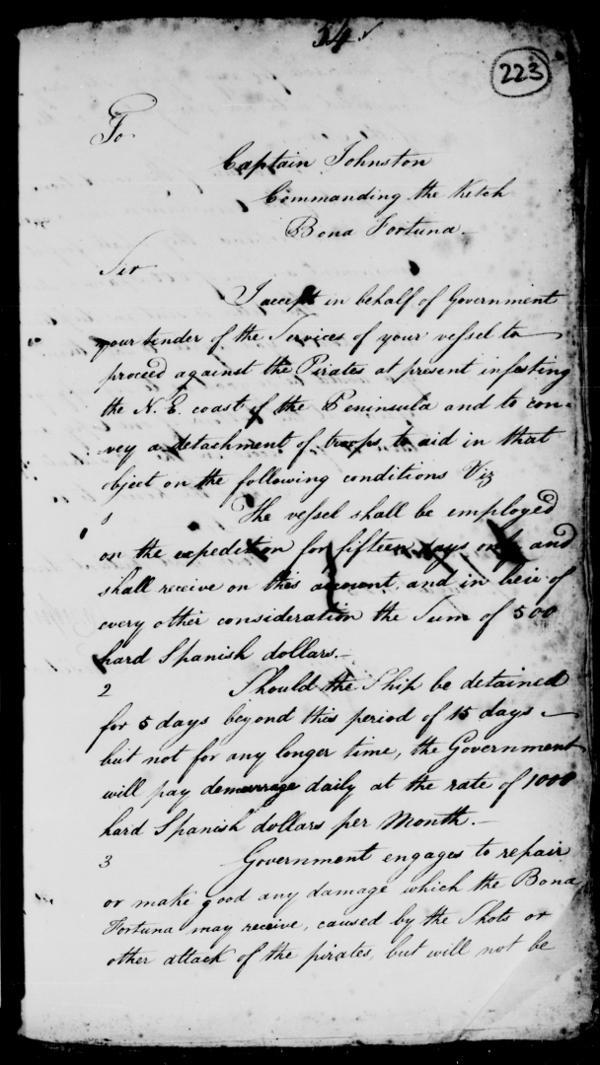 54
223
To
Captain Johnston
Commanding the Ketch
Bona Fortuna.
Sir
I accept in behalf of Government
your tender of the Services of your vessel to
proceed against the Pirates at present infesting
the N. E. coast of the Peninsula and to con-
vey a detachment of troops, to aid in that
object on the following conditions Viz
1 The vessel shall be employed
on the expedition for fifteen days only and
shall receive on this account, and in lieu of
every other consideration the Sum of 500
hard Spanish dollars.—
2 Should the Ship be detained
for 5 days beyond this period of 15 days —
but not for any longer time, the Government
will pay demurrage daily at the rate of 1000
hard Spanish dollars per Month.—
3 Government engages to repair
or make good any damage which the Bona
Fortuna may receive, caused by the Shots or
other attack of the pirates, but will not be